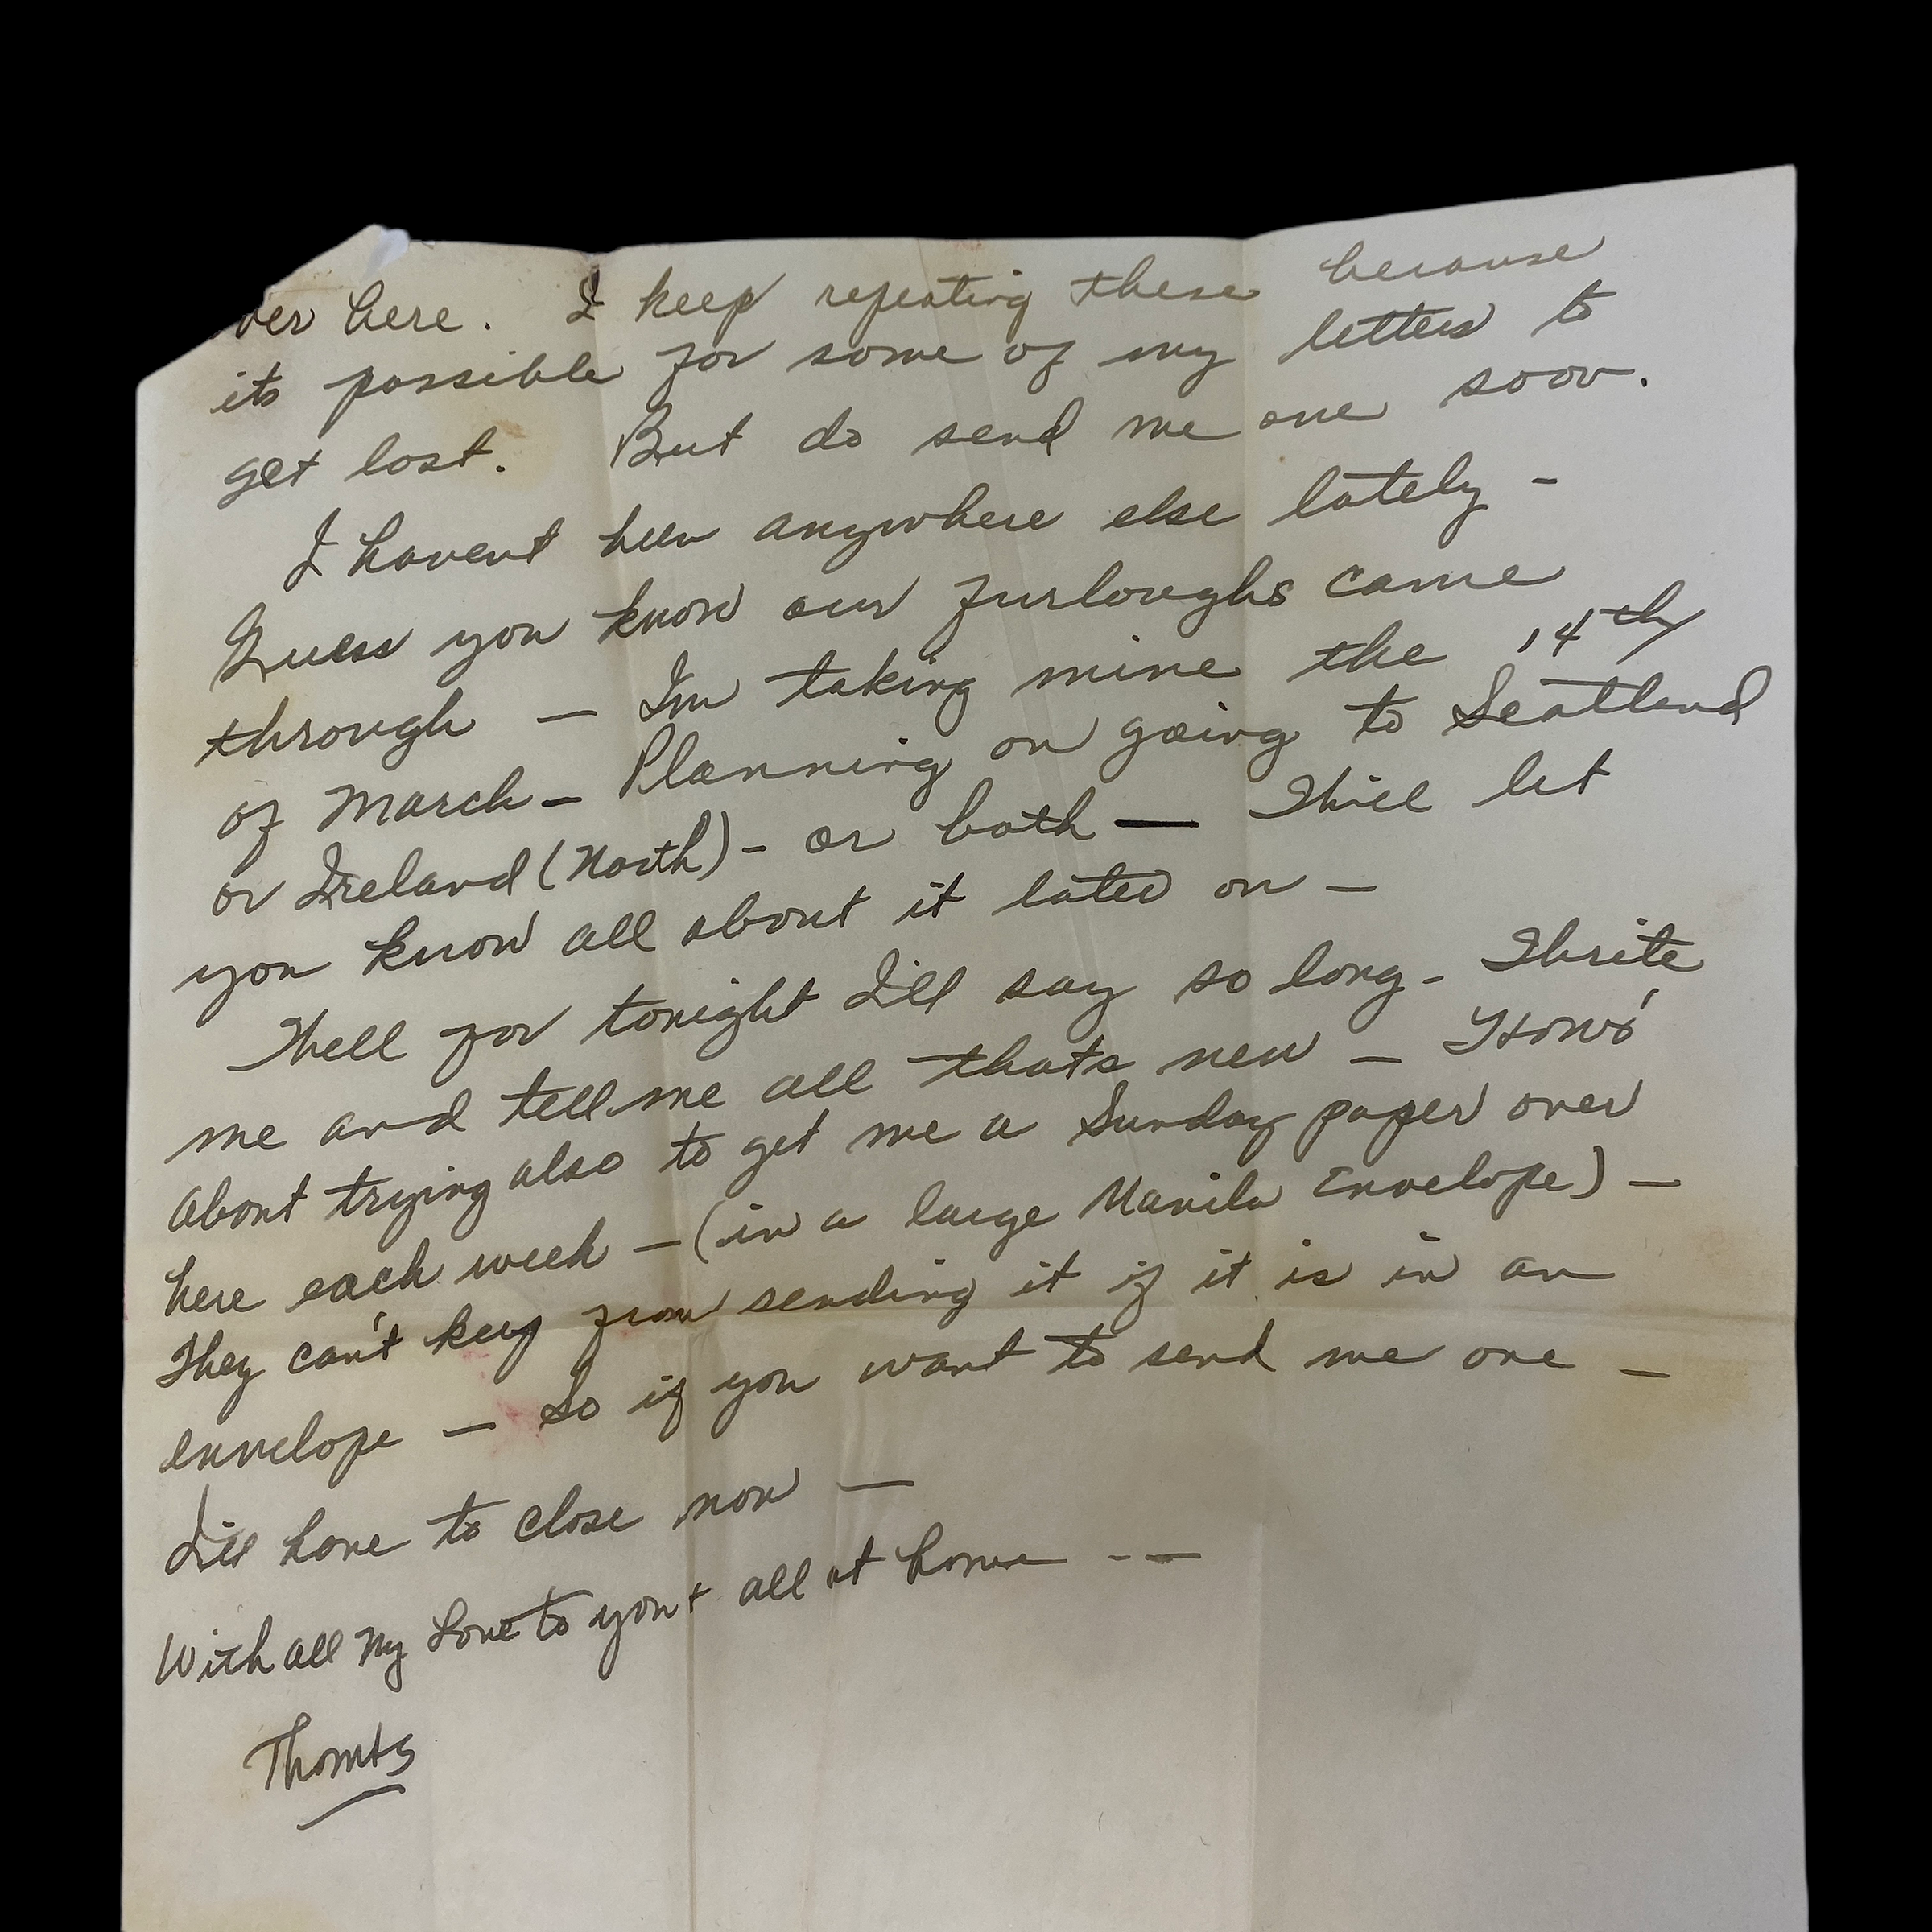 ver here. I keep repeating these because
its possible for some of my letters to
get lost. But do send me one soon.
I havent been anywhere else lately -
Guess you know our furloughs came
through — Im taking mine the 14th
of March — Planning on going to Scotland
or Ireland (North) - or both — Will let
you know all about it later on —
Well for tonight I'll say so long - Write
me and tell me all thats new — How's
about trying also to get me a Sunday paper over
here each week — (in a large Manila Envelope) —
They can't keep from sending it if it is in an
envelope — So if you want to send me one —
I'll have to close now —
With all My Love to you + all at home - —
Thomas